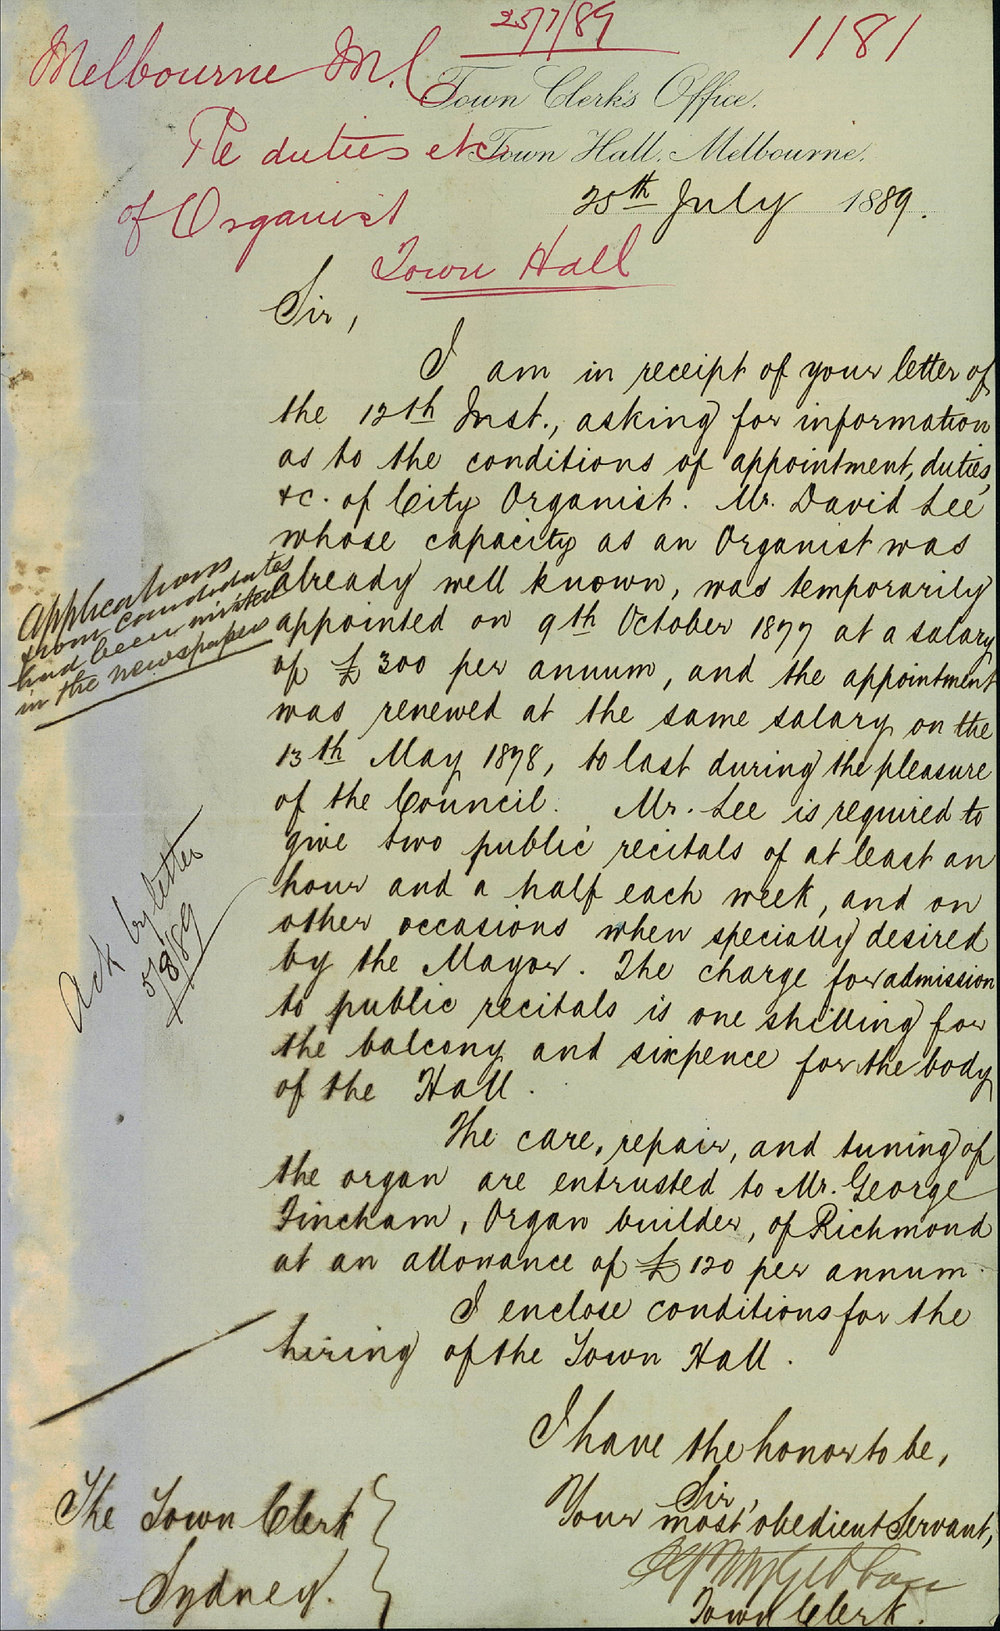 25/7/89
1181
Melbourne M.C
Town Clerk's Office.
Re duties etc
Town Hall, Melbourne.
of Organist
25th July 1889.
Town Hall
Sir,
I am in receipt of your letter of
the 12th Inst., asking for information
as to the conditions of appointment, duties,
&c. of City Organist. Mr. David Lee
whose capacity as an Organist was
already well known, was temporarily
appointed on 9th October 1877 at a salary
of £300 per annum, and the appointment
was renewed at the same salary on the
13th May 1878, to last during the pleasure
of the Council. Mr. Lee is required to
give two public recitals of at least an
hour and a half each week, and on
other occasions when specially desired
by the Mayor. The charge for admission
to public recitals is one shilling for
the balcony and sixpence for the body
of the Hall.
The care, repair, and tuning of
the organ are entrusted to Mr. George
Fincham, Organ builder, of Richmond
at an allowance of £120 per annum.
I enclose conditions for the
hiring of the Town Hall.
I have the honor to be,
Sir,
Your most obedient Servant,
Town Clerk.
The Town Clerk
Sydney.
Applications
from candidates
had been invited
in the newspapers
Ack by letter
5/8/89